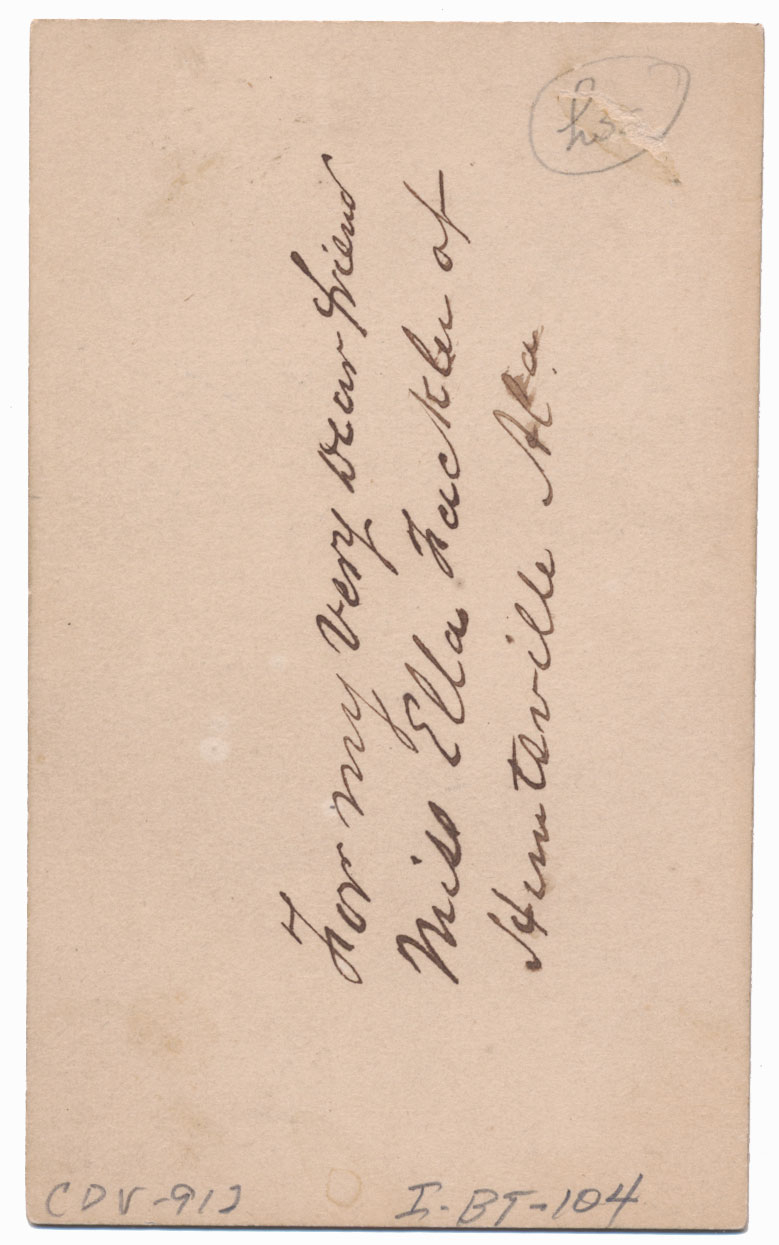 For my very dear friend
Miss Ella Fackler of
Huntsville Ala.
CDV-912
I-BT-104